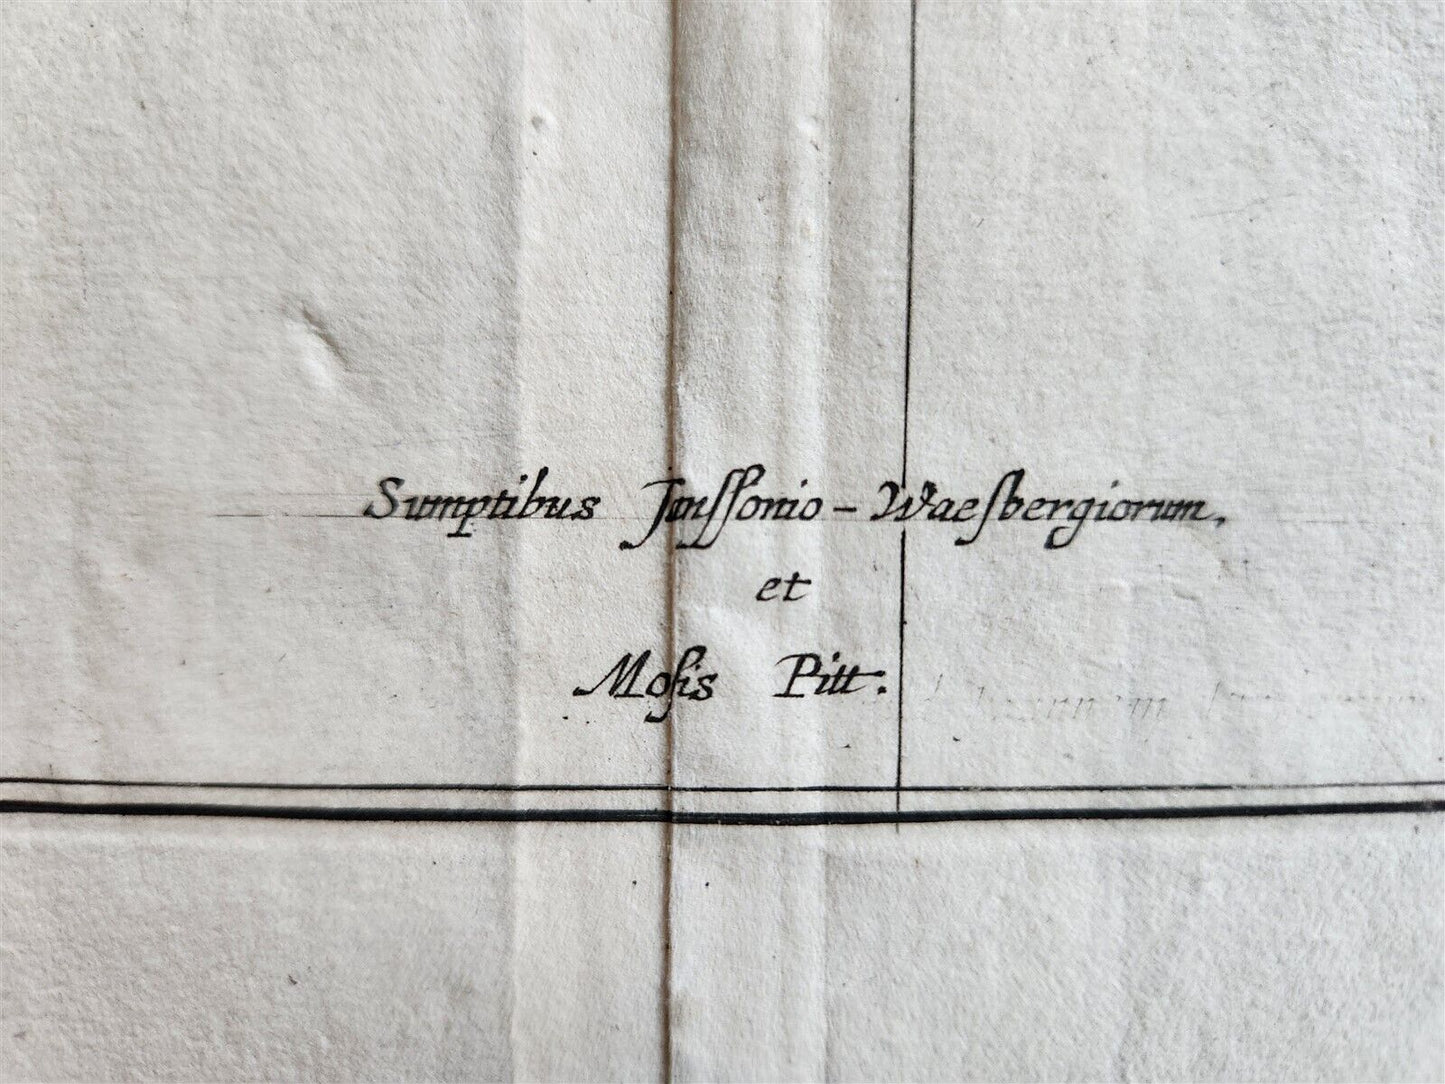 Sumptibus Janſſonio - Waeſbergiorum,
et
Moſis Pitt.